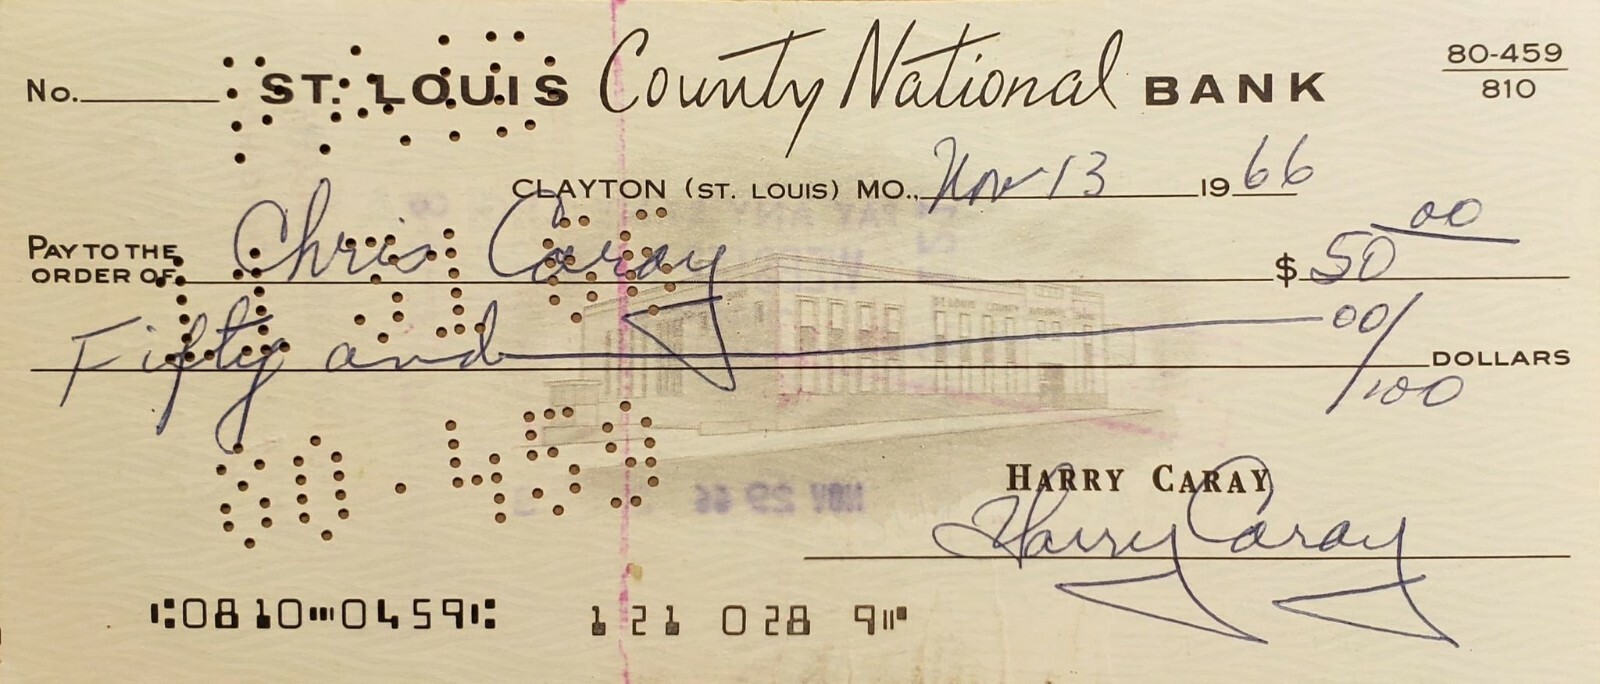 No. ST. LOUIS County National BANK 80-459/810
CLAYTON (ST. LOUIS) MO., Nov 13 1966
PAY TO THE ORDER OF Chris Caray $ 50 00
Fifty and 00/100 DOLLARS
80-459
HARRY CARAY
Harry Caray
⑆0810⑉0459⑆ 121 028 9⑈